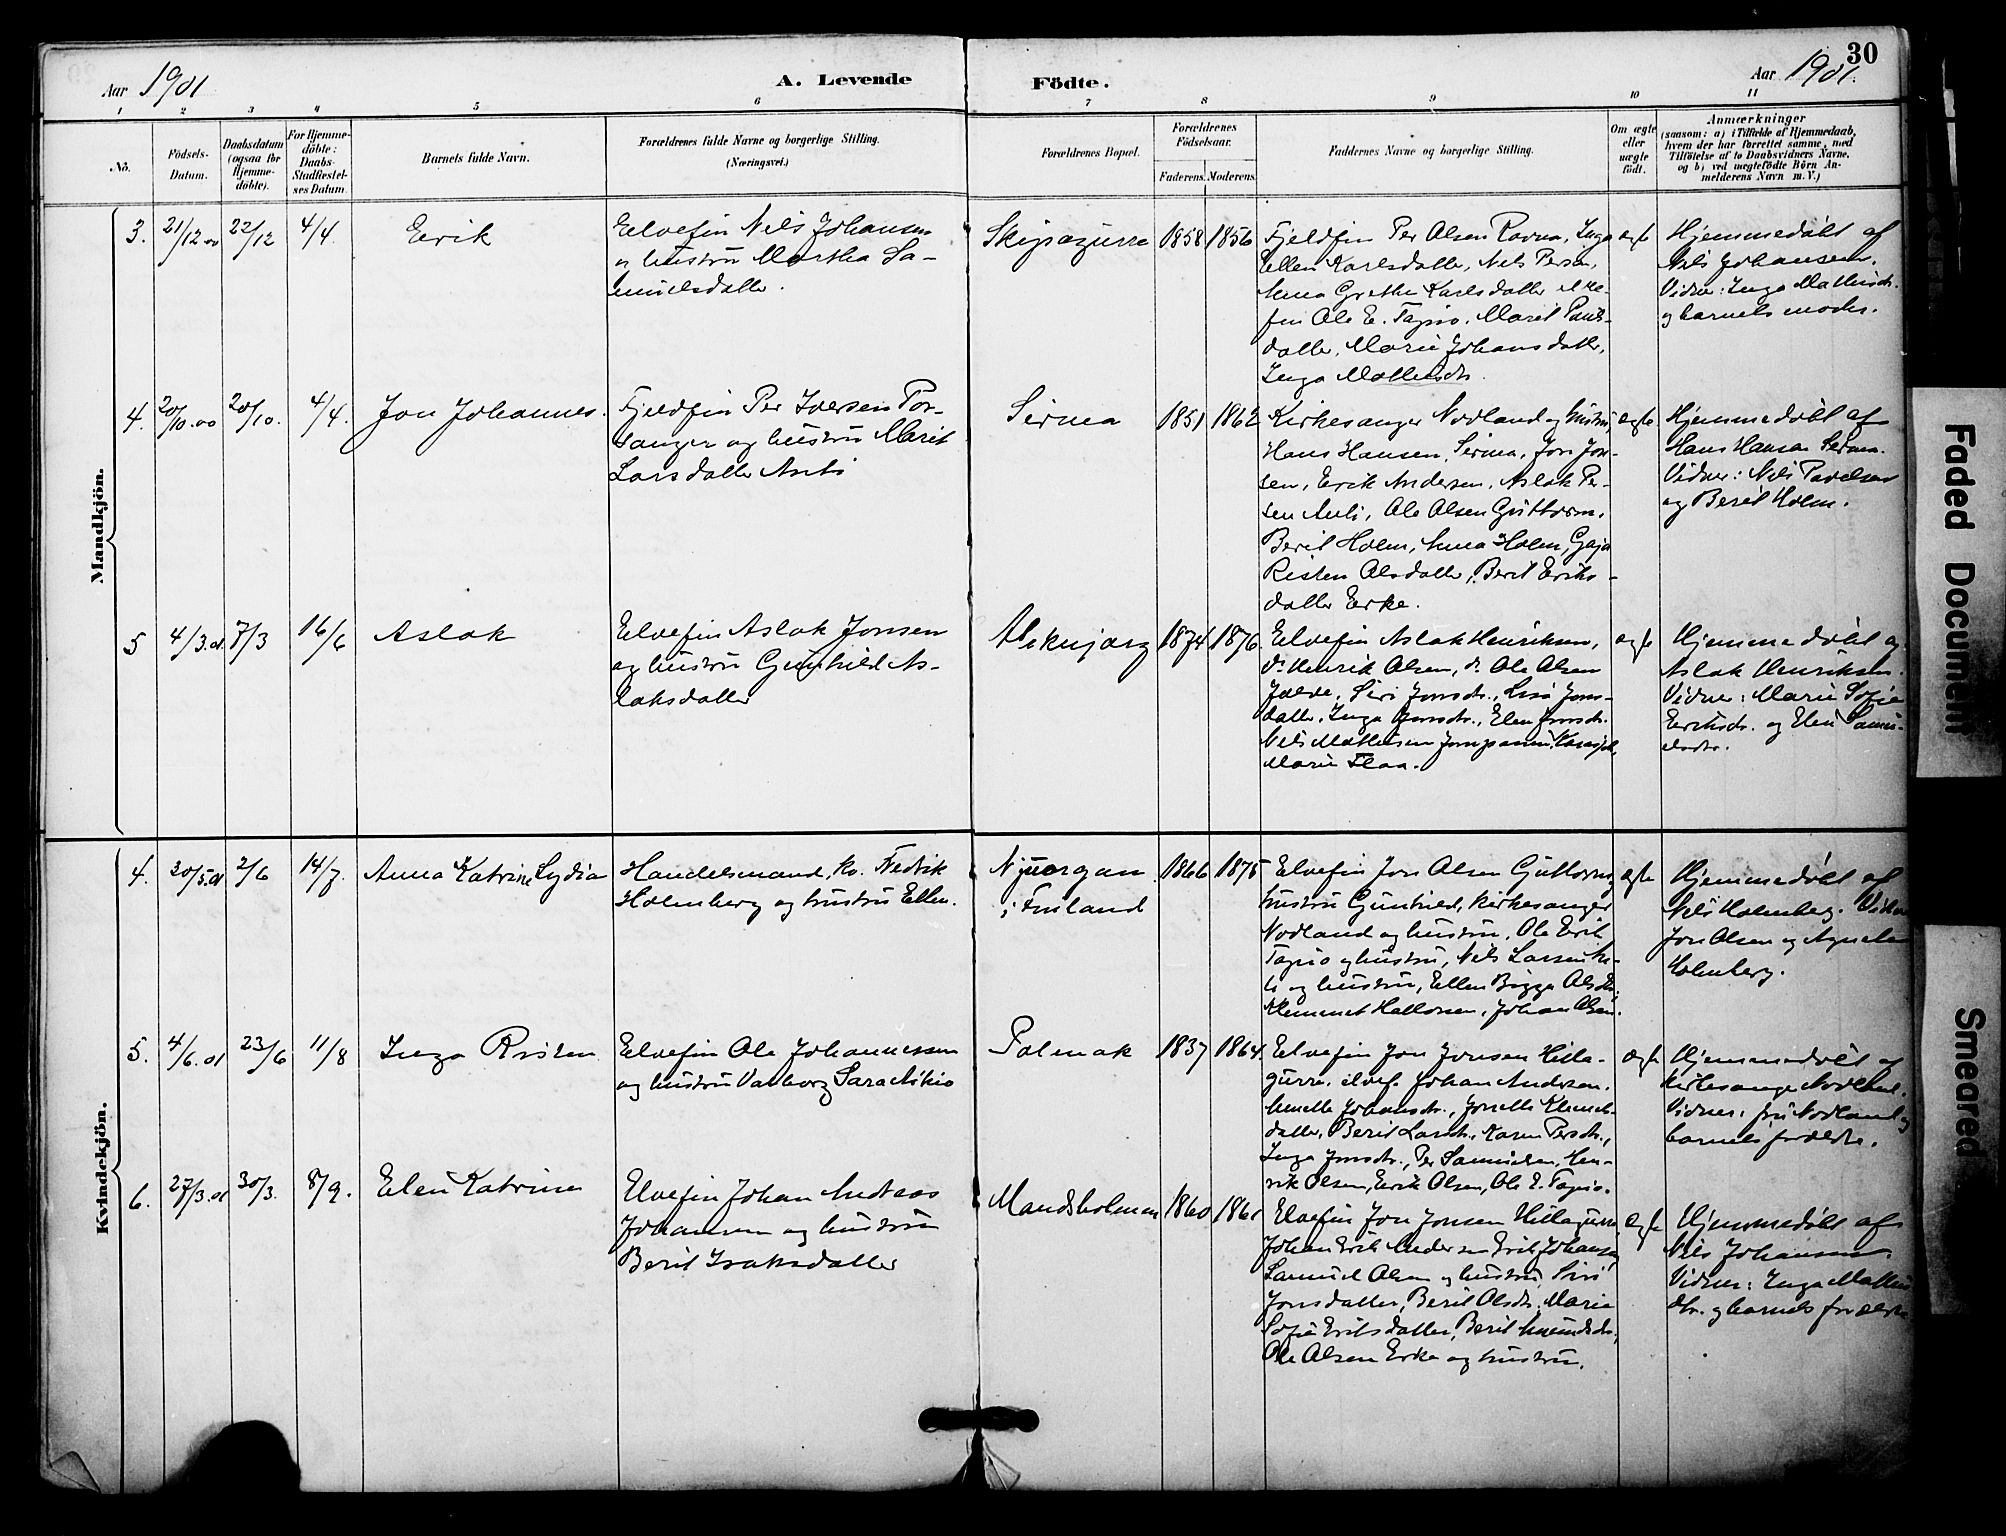 30
Aar 1901
A. Levende
Födte.
Aar 1901.
1 2 3 4 5 6 7 8 9 10 11
No.
Födsels-
Datum.
Daabsdatum
(ogsaa for
Hjemme-
döbte).
For Hjemme-
döbte:
Daabs-
Stadfæstel-
ses Datum.
Barnets fulde Navn.
Forældrenes fulde Navne og borgerlige Stilling.
(Næringsvei.)
Forældrenes Bopæl.
Forældrenes
Födselsaar.
Faderens. Moderens.
Faddernes Navne og borgerlige Stilling.
Om ægte
eller
uægte
födt.
Anmærkninger
(saasom: a) i Tilfælde af Hjemmedaab,
hvem der har forrettet samme, med
Tilföielse af to Daabsvidners Navne,
og b) ved uægtefödte Börn An-
melderens Navn m. V.)
Mandkjön.
3.
21/12 00
22/12
4/4.
Eerik
Eelvefin Nils Johansen
og hustru Martha Sa-
muelsdatter.
Skipagurra
1858 1856
Fjeldfin Per Olsen Ravna, Inga
Ellen Karlsdatter, Nils Persen,
Anna Grethe Karlsdatter elve-
fin Ole E. Tapio, Marit Pauls-
datter, Marie Johansdatter,
Inga Mathisdtr.
ægte
Hjemmedöbt af
Nils Johansen.
Vidner: Inga Mathisdtr.
og barnets moder.
4.
20/10.00
20/10.
4/4.
Jon Johannes.
Fjeldfin Per Iversen Por-
sanger og hustru Marit
Larsdatter Anti
Sirma
1851 1862
Kirkesanger Nordland og hustru,
Hans Hansen, Sirma, Jon Jon-
sen, Erik Andersen, Aslak Per-
sen Anti, Ole Olsen Guttorm,
Berit Holm, Anna Holm, Gaja
Risten Olsdatter, Berit Eriks-
datter Eerke.
ægte
Hjemmedöbt af
Hans Hansen Sirma.
Vidner: Nils Paulsen
og Berit Holm.
5
4/3.01
7/3
16/6
Aslak
Eelvefin Aslak Jonsen
og hustru Gunhild As-
laksdatter
1874 1876.
Eelvefin Aslak Henriksen,
do Henrik Olsen, do Ole Olsen
Jalve, Siri Jonsdtr., Lisa Jons-
datter, Inga Jonsdtr., Elen Jonsdtr.
Nils Mathisen
Marie Flaa.
ægte
Hjemmedöbt af
Aslak Henriksen.
Vidner: Marie Sofie
Eeriksdr. og Elen Samu-
elsdtr.
Kvindekjön.
4.
30/5.01
2/6
14/7.
Anna Katrine Lydia
Handelsmand, kv. Fredrik
Holmberg og hustru Ellen.
Njuorgan
i Finland
1866 1875
Elvefin Jon Olsen Guttorm og
hustru Gunhild, kirkesanger
Nordland og hustru, Ole Erik
Tapio og hustru, Nils Larsen
og hustru, Ellen Bigga Olsdtr.
Klemmet Halvorsen, Johan Olsen.
ægte
Hjemmedöbt af
Nils Holmberg. Vidner
Jon Olsen og
Holmberg.
5.
4/6.01
23/6
11/8
Inga Risten
Eelvefin Ole Johannessen
og hustru Varborg Sara Aikio
Polmak
1837 1864.
Eelvefin Jon Jonsen Hilla-
gurra, elvef. Johan Andersen,
Anette Johansdtr., Jonette Klemet-
datter, Berit Larsdtr., Karen Persdtr.,
Inga Jonsdtr., Per Samuelsen, Hen-
rik Olsen, Eerik Olsen, Ole E. Tapio.
ægte
Hjemmedöbt af
kirkesanger Nordland.
Vidner: fru Nordland og
barnets forældre.
6.
27/3.01
30/3.
8/9.
Elen Katrine
Elvefin Johan Andreas
Johansen og hustru
Berit Isaksdatter
Mandsholmen
1860 1861
Elvefin Jon Jonsen Hillagurra
Johan Erik Andersen Erik Johansen,
Samuel Olsen og hustru, Siri
Jonsdatter, Berit Olsdtr., Marie
Sofie Eriksdatter, Berit
Ole Olsen Erke og hustru.
ægte
Hjemmedöbt af
Nils Johansen
Vidner: Inga Mathis
dtr. og barnets forældre
Faded Document
Smeared